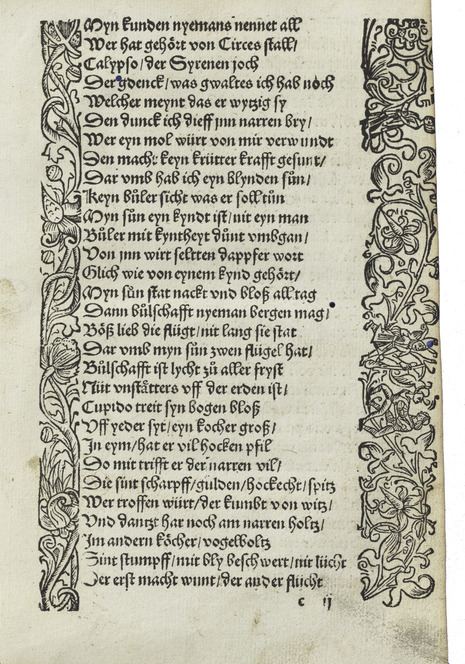 Myn kunden nyemans nennet all
Wer hat gehört von Circes stall/
Calypso/ der Syrenen joch
Der gdenck/ was gwaltes ich hab noch
Welcher meynt das er wytzig sy
Den dunck ich dieff jnn narren bry/
Wer eyn mol würt von mir verwundt
Den macht keyn krütter krafft gesunt/
Dar vmb hab ich eyn blynden sůn/
Keyn bůler sicht was er soll tůn
Myn sůn eyn kyndt ist/ nit eyn man
Bůler mit kyntheyt důnt vmbgan/
Von jnn wirt seltten dappfer wort
Glich wie von eynem kynd gehört/
Myn sůn stat nackt vnd bloß all tag
Dann bůlschafft nyeman bergen mag/
Böß lieb die flügt/ nit lang sie stat
Dar vmb myn sůn zwen flügel hat/
Bůlschafft ist lycht zů aller fryst
Nüt vnstätters vff der erden ist/
Cupido treit syn bogen bloß
Vff yeder syt/ eyn kocher groß/
In eym/ hat er vil hocken pfil
Do mit trifft er der narren vil/
Die sint scharpff/ gulden/ hockecht/ spitz
Wer troffen würt/ der kumbt von witz/
Vnd dantzt har noch am narren holtz/
Im andern köcher/ vogelboltz
Sint stumpff/ mit bly beschwert/ nit lücht
Der erst macht wunt/ der ander flücht
c ij